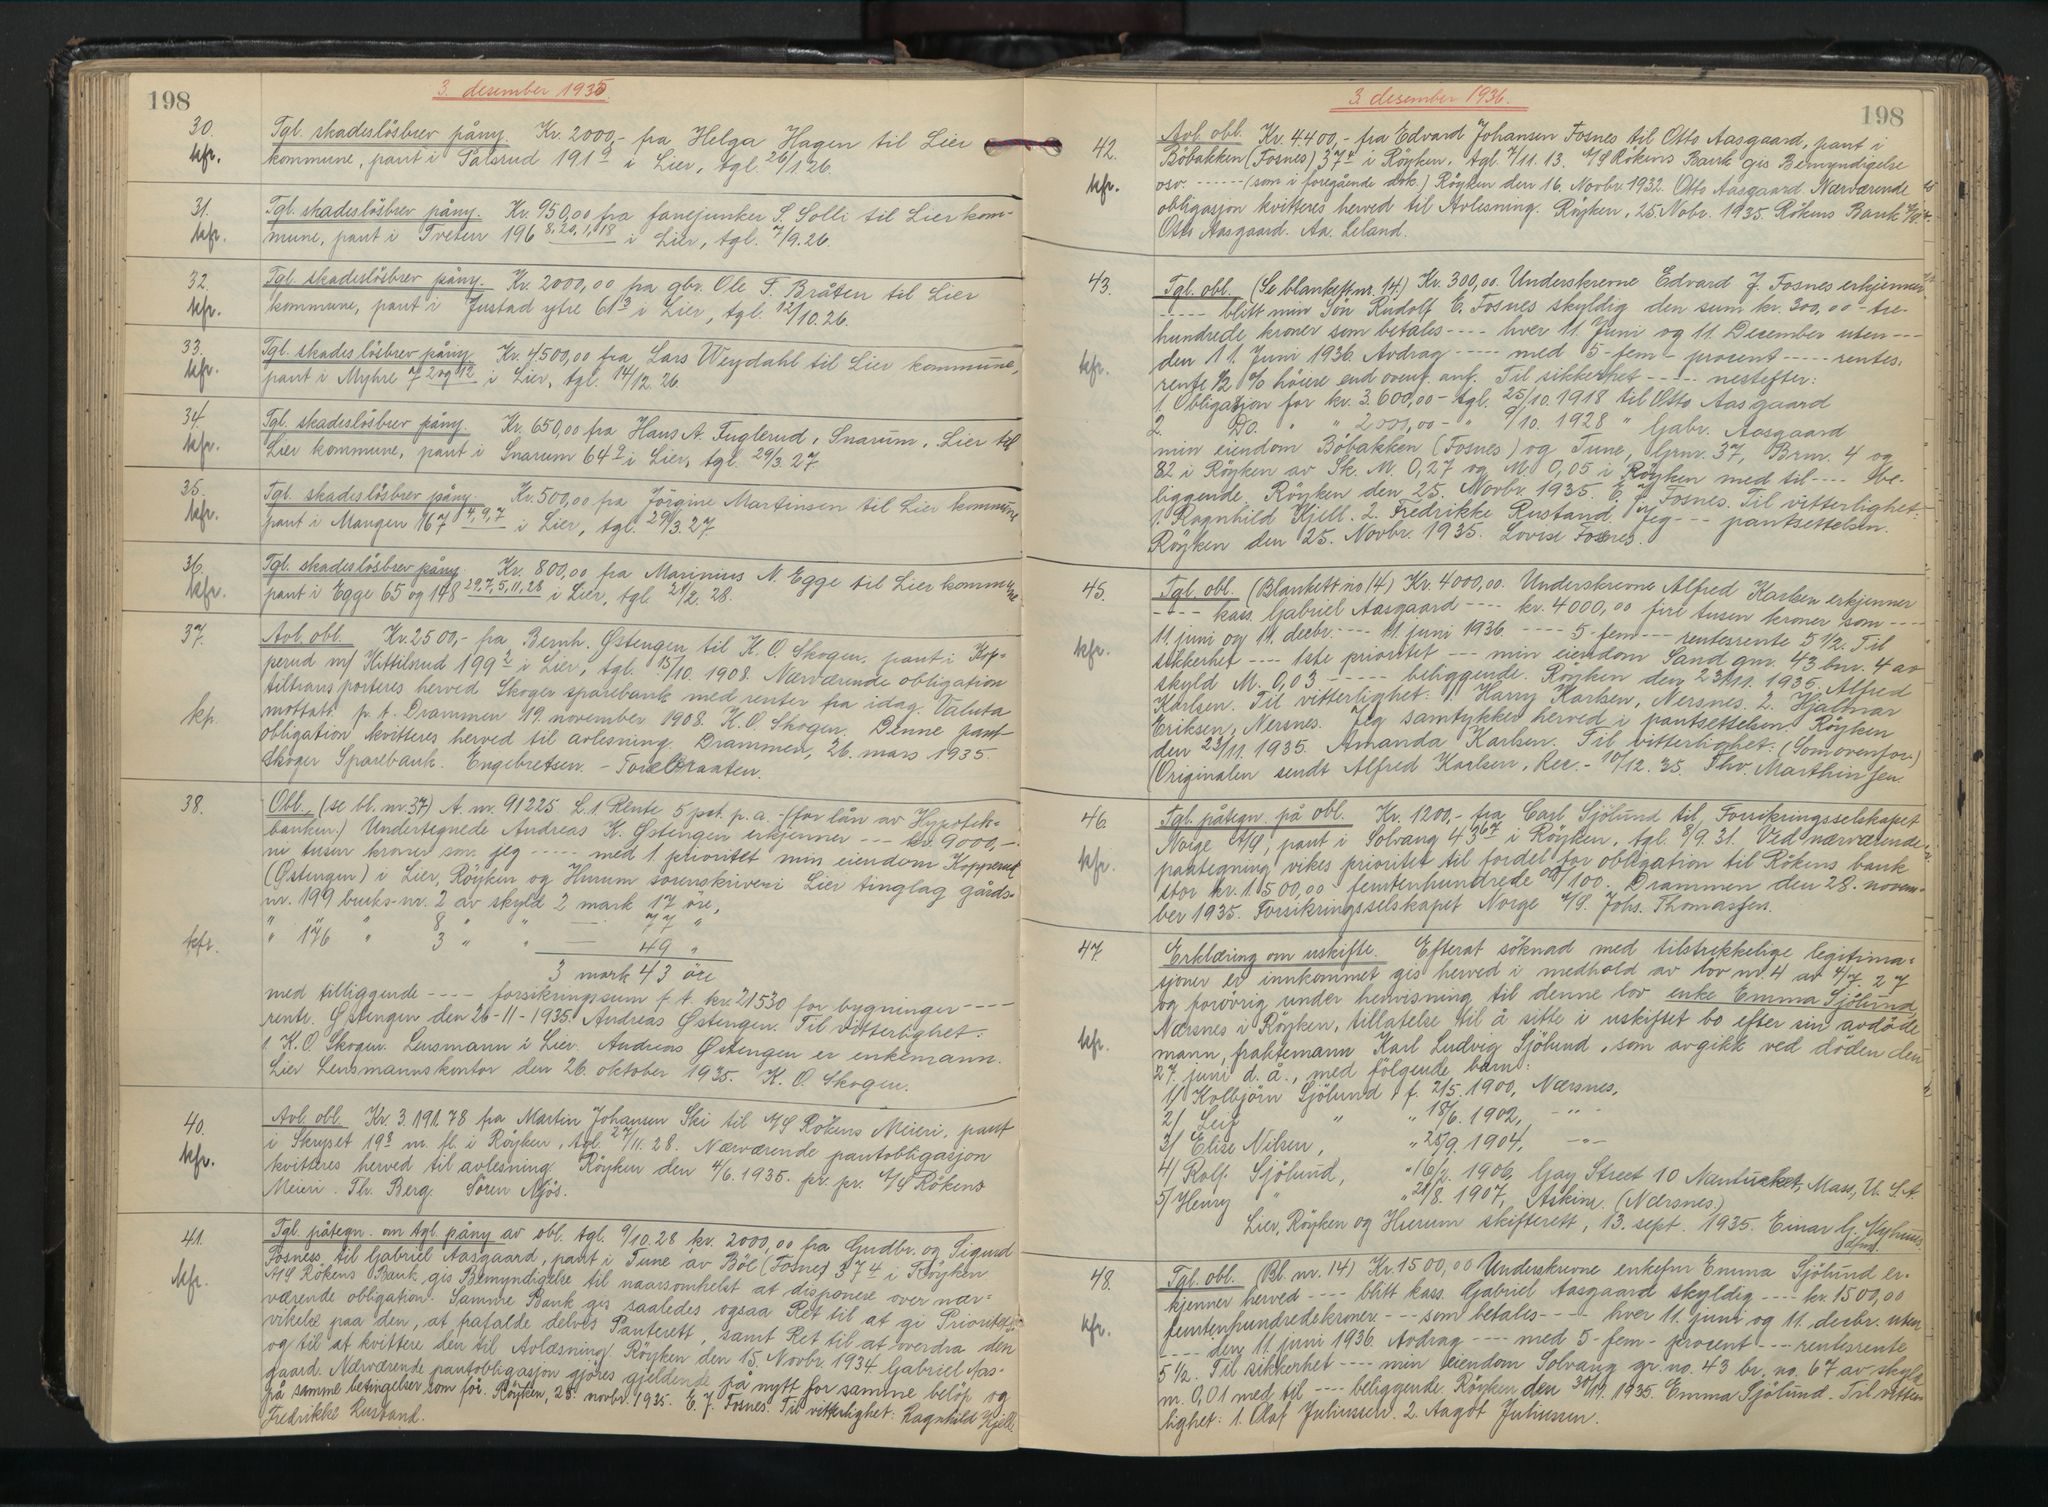 198
3. desember 1935.
30.
kfr.
Tgl. skadeslösbrev påny. Kr. 2000,- fra Helga Hagen til Lier
kommune, pant i Pålsrud 191 i Lier, tgl. 26/1.26.
31.
kfr.
Tgl. skadeslösbrev påny. Kr. 950,00 fra fanejunker S. Solli til Lier kom-
mune, pant i Tveten 196 8,20,1,18 i Lier, tgl. 7/9.26.
32.
kfr.
Tgl. skadeslösbrev påny. Kr. 2000,00 fra gbr. Ole T. Bråten til Lier
kommune, pant i Justad ytre 61³ i Lier, tgl. 12/10.26.
33.
kfr.
Tgl. skadeslösbrev påny. Kr. 4500,00 fra Lars Weydahl til Lier kommune,
pant i Myhre 7 2 og 12 i Lier, tgl. 14/12.26.
34.
kfr.
Tgl. skadeslösbrev påny. Kr. 650,00 fra Hans A. Fuglerud, Snarum, Lier til
Lier kommune, pant i Snarum 64² i Lier, tgl. 29/3.27
35.
kfr.
Tgl. skadeslösbrev påny. Kr. 500,00 fra Jörgine Martinsen til Lier kommune
pant i Mangen 167 4,9,7 i Lier, tgl. 29/3.27
36.
kfr.
Tgl. skadeslösbrev påny. Kr. 800,00 fra Marinius N. Egge til Lier kommune
pant i Egge 65 og 148 29,7,5,11,28 i Lier, tgl. 21/2.28.
37.
kp.
Avl. obl. Kr. 2500,- fra Bernh. Østengen til K. O. Skogen, pant i Kop-
perud m/ Kittilsrud 199² i Lier, tgl. 15/10.1908. Nærværende obligation
tiltransporteres herved Skoger sparebank med renter fra idag. Valuta
mottatt. p.t. Drammen 19. november 1908. K. O. Skogen. Denne pant
obligation kvitteres herved til avlesning. Drammen, 26. mars 1935.
Skoger Sparebank. Engebretsen. - Tore Braaten.
38.
kfr.
Obl. (se bl. nr. 37) A. nr. 91225 L. 1. Rente 5 pct. p.a. - (for lån av Hypotek-
banken.) Undertegnede Andreas K. Østengen erkjenner --- kr. 9000,-
ni tusen kroner som jeg ----- med 1 prioritet min eiendom Kopperud
(Østengen) i Lier, Röyken og Hurum sorenskriveri Lier tinglag gårds-
nr. 199 bruks-nr. 2 av skyld 2 mark 17 öre,
" " " 8 " " — 77 "
" 176 " 3 " " — 49 "
3 mark 43 öre
med tilliggende ---- forsikringssum p.t. kr. 21530 for bygninger ----
rentr. Østengen den 26-11-1935. Andreas Østengen. Til vitterlighet:
1 K. O. Skogen. Lensmann i Lier. Andreas Østengen er enkemann.
Lier Lensmannskontor den 26. oktober 1935. K. O. Skogen.
40.
kfr.
Avl. obl. Kr. 3.191.78 fra Martin Johansen Ski til A/S Rökens Meieri, pant
i Skryset 19⁸ m. fl. i Röyken, tgl. 27/11.28. Nærværende pantobligasjon
kvitteres herved til avlesning. Röyken den 4/6.1935. pr. pr. A/S Rökens
Meieri. Th. Berg. Sören Njös.
41.
kfr.
Tgl. påtegn. om tgl. påny av obl. tgl. 9/10.28 kr. 2000,00 fra Gudbr. og Sigurd
Fosness til Gabriel Aasgaard, pant i Tune av Böl (Fosnes) 37⁴ i Röyken
A/S Rökens Bank gis Bemyndigelse til naarsomhelst at disponere over nær-
værende obligation. Samme Bank gis saaledes ogsaa Ret til at gi Prioritets-
vikelse paa den, at frafalde delvis Panterett, samt Ret til at overdra den
og til at kvittere den til Avlæsning. Röyken den 15. Novbr. 1934. Gabriel Aas-
gaard. Nærværende pantobligasjon gjöres gjeldende på nytt for samme belöp og
på samme betingelser som för. Röyken, 25. novbr. 1935. E. J. Fosnes. Til vitterlighet: Ragnhild Kjell
Fredrikke Rustand.
198
3. desember 1936.
42.
kfr.
Avl. obl. Kr. 4400,- fra Edvard Johansen Fosnes til Otto Aasgaard, pant i
Böbakken (Fosnes) 37⁴ i Röyken, tgl. 7/11.13. A/S Rökens Bank gis Bemyndigelse
osv. ------ (som i foregående dok.) Röyken den 16. Novbr. 1932. Otto Aasgaard. Nærværende
obligasjon kvitteres herved til Avlesning. Röyken, 25. Nobr. 1935. Rökens Bank
Otto Aasgaard. Aa. Leland.
43.
kfr.
Tgl. obl. (Se blankett nr. 14.) Kr. 300,00. Underskrevne Edvard J. Fosnes erkjenner
----- blitt min Sön Rudolf E. Fosnes skyldig den sum kr. 300,00 - tre-
hundrede kroner som betales ---- hver 11. Juni og 11. December uten ---
den 11. Juni 1936. Avdrag ----- med 5 - fem - procent ----- rentes,
rente 1/2 % höiere end ovenf. anf. Til sikkerhet ----- nestefter:
1. Obligasjon for kr. 3.600,00 - tgl. 25/10.1918 til Otto Aasgaard
2. Do. " " 2000,00 - " 9/10.1928 " Gabr. Aasgaard
min eiendom Böbakken (Fosnes) og Tune, Grnr. 37, Brnr. 4 og
82 i Röyken av Sk. M. 0,27 og M. 0,05 i Röyken med til---- be-
liggende. Röyken den 25. Novbr. 1935. E. J. Fosnes. Til vitterlighet:
1. Ragnhild Kjell. 2. Fredrikke Rustand. Jeg --- pantsettelsen.
Röyken den 25. Novbr. 1935. Lovise Fosnes.
45.
kfr.
Tgl. obl. (Blankett no 14) Kr. 4000,00. Underskrevne Alfred Karlsen erkjenner
---- kass. Gabriel Aasgaard ---- kr. 4000,00 fire tusen kroner som ----
11. juni og 11. decbr. ---- 11. juni 1936. ---- 5-fem --- rentesrente 5 1/2. Til
sikkerhet ---- 1ste prioritet --- min eiendom Sand gnr. 43 bnr. 4 av
skyld M. 0,03 ----- beliggende. Röyken den 23/11.1935. Alfred
Karlsen. Til vitterlighet: 1. Harry Karlsen, Nersnes. 2. Hjalmar
Eriksen, Nersnes. Jeg samtykker herved i pantsettelsen. Röyken
den 23/11.1935. Amanda Karlsen. Til vitterlighet: (Som ovenfor.)
(Originalen sendt Alfred Karlsen, Rec. - 10/12.35. Thv. Marthinsen.
46.
kfr.
Tgl. påtegn. på obl. Kr. 1200,- fra Carl Sjölund til Forsikringsselskapet
Norge A/S, pant i Solvang 43⁶⁷ i Röyken, tgl. 8/9.31. Ved nærværende
paategning vikes prioritet til fordel for obligation til Rökens bank
stor kr. 1500,00 femtenhundrede 00/100. Drammen den 28. novem-
ber 1935. Forsikringsselskapet Norge A/S. Johs. Thomassen.
47
kfr.
Erklæring om uskifte. Efterat söknad med tilstrekkelige legitima-
sjoner er innkommet gis herved i medhold av lov nr. 4 av 4/7.27
og forövrig under henvisning til denne lov enke Emma Sjölund,
Nærsnes i Röyken, tillatelse til å sitte i uskiftet bo efter sin avdöde
mann, fraktemann Karl Ludvig Sjölund, som avgikk ved döden den
27. juni d.å., med fölgende barn:
1/ Kolbjörn Sjölund f. 2/5.1900, Nærsnes,
2/ Leif " " 18/6.1902, -"-
3/ Elise Nilsen, " 25/9.1904, -"-
4/ Rolf Sjölund, " 16/2.1906, Gay Street 10 Nantucket, Mass, U.S.A.
5/ Henry " " 21/8.1907, Askim (Nærsnes)
Lier, Röyken og Hurum skifterett, 13. sept. 1935. Einar G. Myhrus.
48.
kfr.
Tgl. obl. (Bl. nr. 14) Kr. 1500,00 Underskrevne enkefru Emma Sjölund er-
kjenner herved ---- blitt kass. Gabriel Aasgaard skyldig ---- kr. 1500,00
femtenhundredekroner --- som betales --- hver 11. juni og 11. decbr. uten
---- den 11. juni 1936. Avdrag ---- med 5 - fem - procent ---- rentesrente
5 1/2. Til sikkerhet ---- min eiendom Solvang gr. no. 43 br. no. 67 av skyld
m. 0,01 med til ---- beliggende. Röyken den 30/11.1935. Emma Sjölund. Til vitter-
lighet: 1. Olaf Juliussen. 2. Aagot Juliussen.